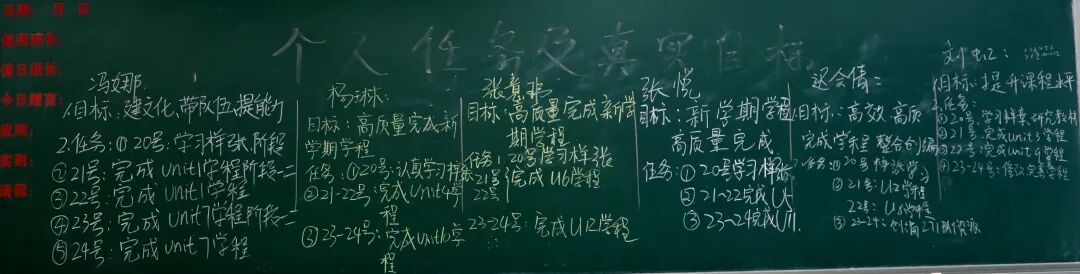 日期： 月 日
值周班长：
值日班长：
今日赠言：
应到：
实到：
请假：
个人任务及真实目标
冯娜：
1.目标：建文化、带队伍、提能力
2.任务：①20号：学习样张阶段一
②21号：完成unit1学程阶段二
③22号：完成unit1学程
④23号：完成unit7学程阶段二
⑤24号：完成unit7学程
杨琳：
目标：高质量完成新
学期学程
任务：①20号：认真学习样张
②21-22号：完成unit4学
程
③23-24号：完成unit10学
程
目标：高质量完成新学
期学程
任务：20号学习样张
21号
22号
完成U6学程
23-24号：完成U12学程
张悦
目标：新学期学程
高质量完成
任务：①20号学习样张
②21-22完成U5
③23-24完成U11
迟会倩：
目标：高效、高质
完成学程 整合
任务：①20号
②21号：U2学程
22号：U8学程
③23-24：
刘虹：
目标：提升课程水平
任务：
①20号：学习样章，研究教材
②21号：完成unit3学程
③22号：完成unit9学程
④23-24号：修改完善学程